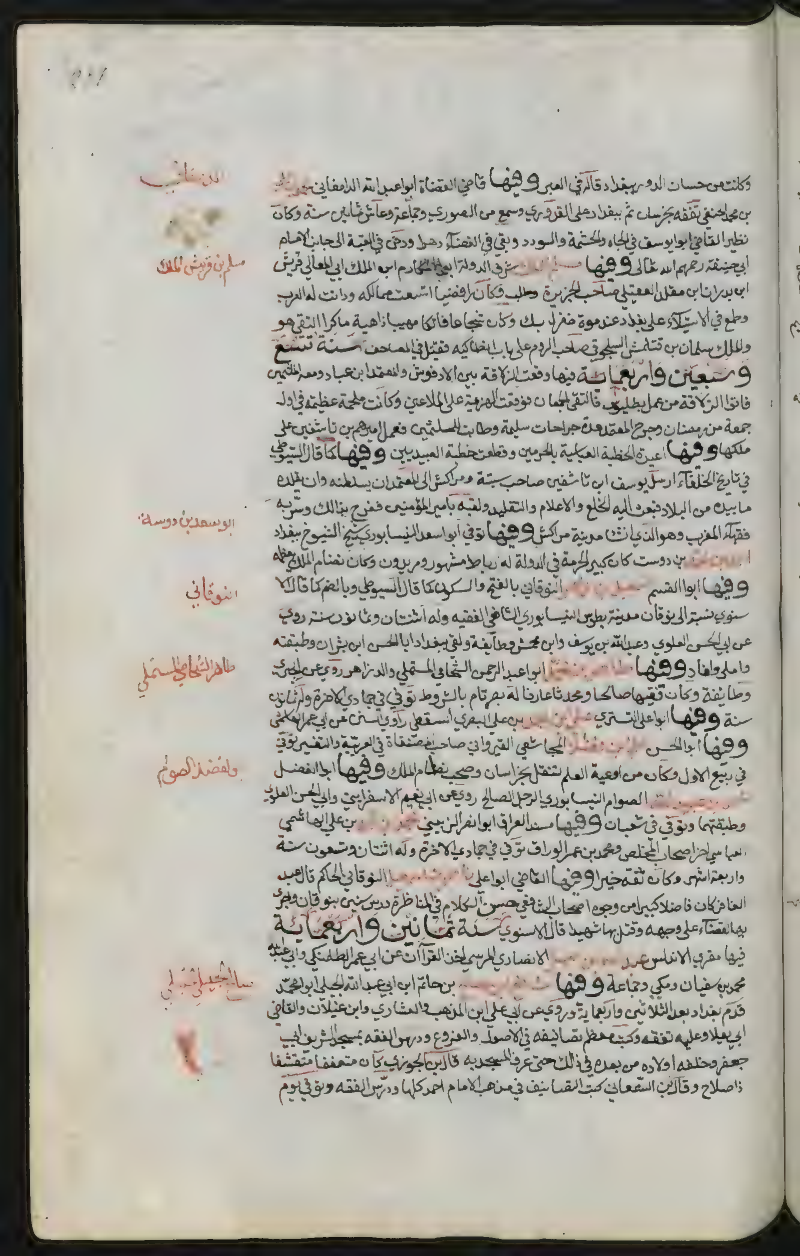 وكانت من حسنات الدور ببغداد قاله في العبر وفيها قاضي القضاة ابو عبد الله الدامغاني
بن محمد الحنفي تفقه بخراسان ثم ببغداد على القدوري وسمع من الصوري وجماعة وعاش ثمانين سنة وكان
نظير القاضي ابو يوسف في الجاه والحشمة والسودد وبقي في القضاء دهرا ودفن في القبة الى جانب الامام
ابي حنيفة رحمهم الله تعالى وفيها شرف الدولة ابي المكارم ابن الملك ابي المعالي قريش
ابن بدران ابن مقلد العقيلي صاحب الجزيرة وحلب وكان رافضيا اتسعت ممالكه ودانت له العرب
وطمع في الاستيلاء على بغداد عند موت طغرلبك وكان شجاعا فاتكا مهيبا داهية ماكرا التقى هو
والملك سليمان بن قتلمش السلجوقي صاحب الروم على باب انطاكيه فقتل في المصاف سنة تسع
وسبعين واربعمائة فيها وقعت الزلاقة بين الادفوش والمعتمد ابن عباد ومعه الملثمين
فاتوا الزلاقة من عمل بطليوس فالتقى الجمعان فوقعت الهزيمة على الملاعين وكانت ملحمة عظيمة في اول
جمعة من رمضان وجرح المعتمد عدة جراحات سليمة وطابت للملثمين فعمل اميرهم بن تاشفين على
ملكها وفيها اعيدت الخطبة العباسية بالحرمين وقطعت خطبة العبيديين وفيها كما قال السيوطي
في تاريخ الخلفاء ارسل يوسف ابن تاشفين صاحب سبتة ومراكش الى المقتدي ان يسلطنه وان يقلده
ما بيده من البلاد فبعث اليه الخلع والاعلام والتقليد ولقبه بامير المؤمنين ففرح بذلك وسر به
فقهاء المغرب وهو الذي انشا مدينة مراكش وفيها توفي ابو اسعد النيسابوري شيخ الشيوخ ببغداد
بن دوست كان كبير الحرمة في الدولة له رباط مشهور ومريدون وكان نظام الملك يعظمه
وفيها ابو القسم النوقاني بالفتح والسكون كما قال السيوطي وبالضم كما قال الا
سنوي نسبة الى نوقان مدينة بطوس النيسابوري الشافعي الفقيه وله اثنتان وثمانون سنة روى
عن ابي الحسن العلوي وعبد الله بن يوسف وابن محمش وطائفة ولقي ببغداد ابا الحسن ابن بشران وطبقته
واملى وافاد وفيها ابو عبد الرحمن الشحامي المستملي والد زاهر روى عن الحيري
وطائفة وكان فقيها صالحا ومحدثا عارفا له بصر تام بالشروط توفي في جمادي الاخرة وله ثمانون
سنة وفيها ابو علي التستري بن علي البصري السقطي راوي السنن عن ابي عمر الهاشمي
وفيها ابو الحسن المجاشعي القيرواني صاحب المصنفات في العربية والتفسير توفي
في ربيع الاول وكان من اوعية العلم تنقل بخراسان وصحب نظام الملك وفيها ابو الفضل
الصوام النيسابوري الرجل الصالح روى عن ابي نعيم الاسفرايني وابي الحسن العلوي
وطبقتهما وتوفي في شعبان وفيها مسند العراق ابو نصر الزينبي بن علي الهاشمي
العباسي اخر اصحاب المخلص ومحمد بن عمر الوراق توفي في جمادي الاخرة وله اثنتان وتسعون سنة
واربعة اشهر وكان ثقة خيرا وفيها القاضي ابو علي النوقاني الحاكم قال عبد
الغافر كان فاضلا كبيرا من وجوه اصحاب الشافعي حسن الكلام في المناظرة درس سنين بنوقان وجرى
بها القضاء على وجهه وقتل بها شهيدا قال الاسنوي سنة ثمانين واربعمائة
فيها مقري الاندلس الانصاري المرسي اخذ القرآات عن ابي عمر الطلمنكي وابي عبد الله
محمد بن سفيان ومكي وجماعة وفيها بن حاتم ابن ابي عبد الله الجيلي ابو محمد
قدم بغداد بعد الثلاثين واربعماية وروى عن ابي علي ابن المذهب والعشاري وابن غيلان والقاضي
ابي يعلا وعليه تفقه وكتب معظم تصانيفه في الاصول والفروع ودرس الفقه بمسجد الشريف ابي
جعفر وخلفه اولاده من بعده في ذلك حتى عرف المسجد به قال ابن الجوزي كان متعففا متقشفا
ذا صلاح وقال ابن السمعاني كتب التصانيف في مذهب الامام احمد كلها ودرس الفقه وتوفي يوم
مسلم بن قريش الملك
ابو سعد بن دوسة
النوقاني
طاهر الشحامي المستملي
ولفضل الصوام